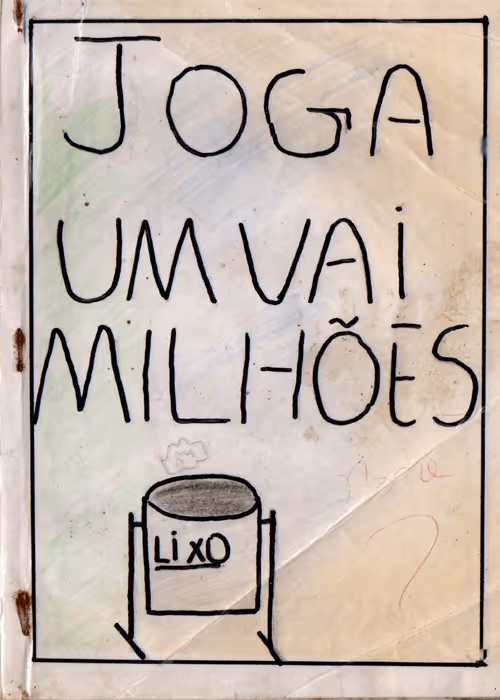 JOGA
UM VAI
MILHÕES
LiXO